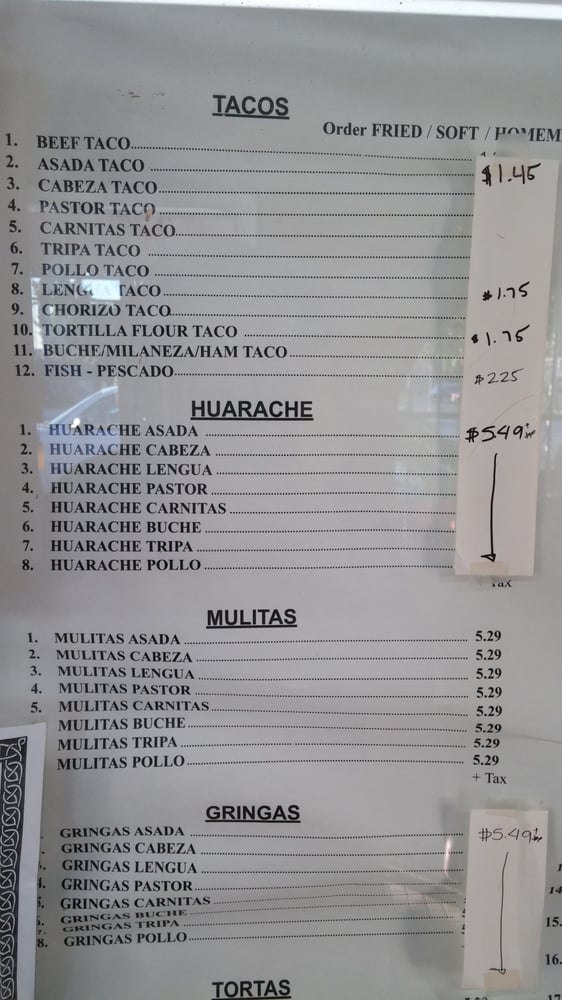 TACOS
Order FRIED / SOFT / HOMEM
1. BEEF TACO
2. ASADA TACO $1.45
3. CABEZA TACO
4. PASTOR TACO
5. CARNITAS TACO
6. TRIPA TACO
7. POLLO TACO
8. LENGUA TACO $1.75
9. CHORIZO TACO
10. TORTILLA FLOUR TACO $1.75
11. BUCHE/MILANEZA/HAM TACO
12. FISH - PESCADO $225
HUARACHE
1. HUARACHE ASADA $5.49
2. HUARACHE CABEZA
3. HUARACHE LENGUA
4. HUARACHE PASTOR
5. HUARACHE CARNITAS
6. HUARACHE BUCHE
7. HUARACHE TRIPA
8. HUARACHE POLLO
+ Tax
MULITAS
1. MULITAS ASADA 5.29
2. MULITAS CABEZA 5.29
3. MULITAS LENGUA 5.29
4. MULITAS PASTOR 5.29
5. MULITAS CARNITAS 5.29
MULITAS BUCHE 5.29
MULITAS TRIPA 5.29
MULITAS POLLO 5.29
+ Tax
GRINGAS
GRINGAS ASADA $5.49
GRINGAS CABEZA
GRINGAS LENGUA
4. GRINGAS PASTOR
GRINGAS CARNITAS 14
GRINGAS BUCHE
7. GRINGAS TRIPA 15.
8. GRINGAS POLLO
16.
TORTAS
17